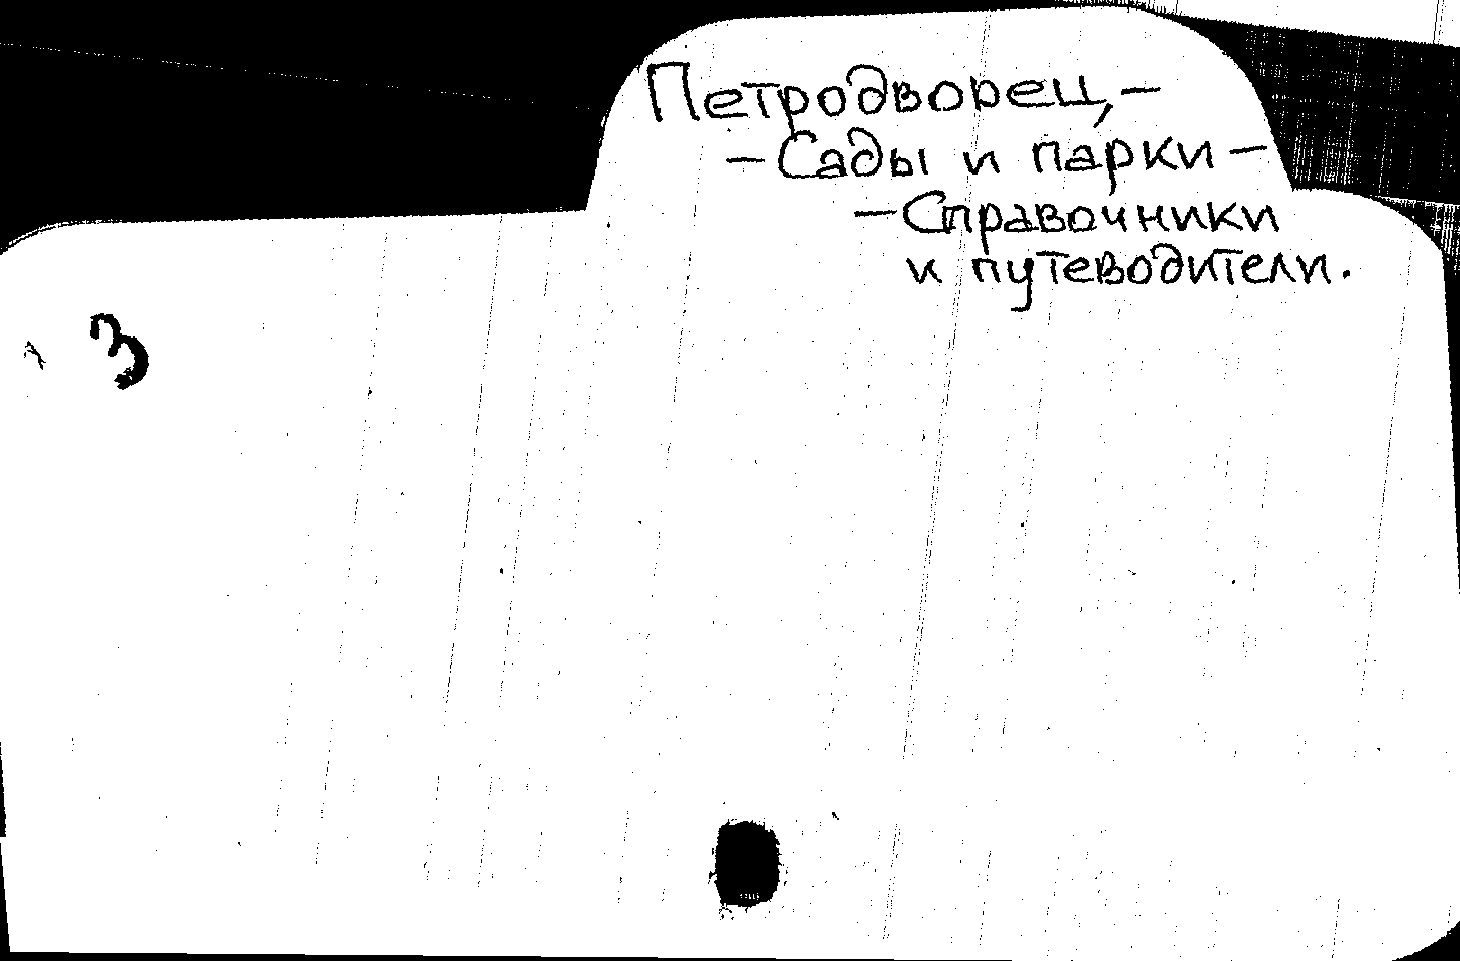 Петродворец,-
-Сады и парки-
-Справочники
и путеводители.
3